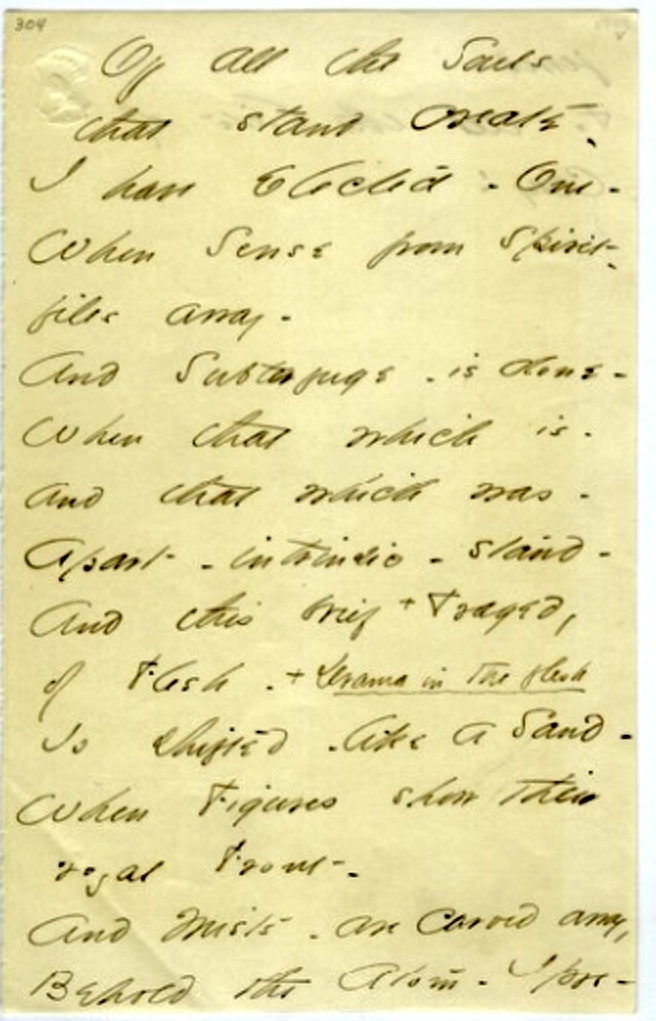 304
Of all the Souls
that stand create -
I have Elected - One -
When Sense from Spirit -
files away -
And Subterfuge - is done -
When that which is -
and that which was -
Apart - intrinsic - stand -
And this brief + Tragedy
of Flesh - + Drama in the flesh
Is shifted - like a Sand -
When Figures show their
royal Front -
And Mists - are carved away,
Behold the Atom - I pre -